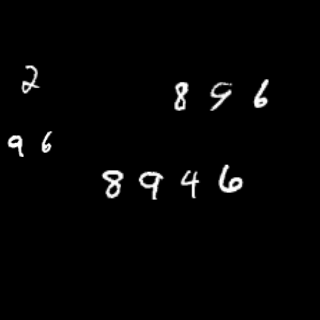 2
896
96
8946